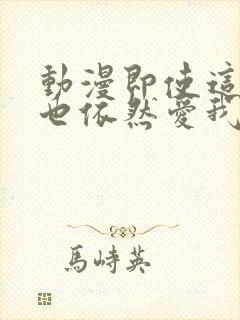 動漫即使這
也依然愛我
馬峙英